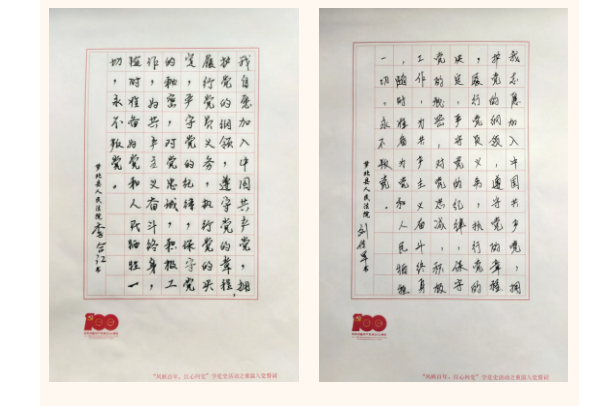 我自愿加入中国共产党,拥
护党的纲领,遵守党的章程,
履行党员义务,执行党的决
定,严守党的纪律,保守党
的秘密,对党忠诚,积极工
作,为共产主义奋斗终身,
随时准备为党和人民牺牲一
切,永不叛党。
萝北县人民法院 李合江 书
100
学党史活动之重温入党誓词
我志愿加入中国共产党,拥
护党的纲领,遵守党的章程
,履行党员义务,执行党的
决定,严守党的纪律,保守
党的秘密,对党忠诚,积极
工作,为共产主义奋斗终身
,随时准备为党和人民牺牲
一切,永不叛党。
萝北县人民法院 刘 书
100
学党史活动之重温入党誓词